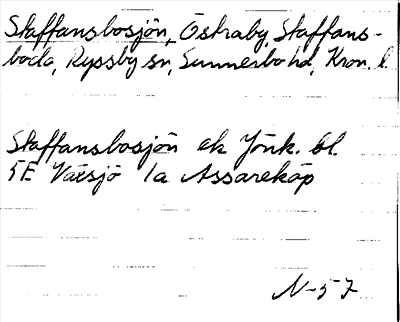 Staffansbosjön, Östraby, Staffans-
boda, Ryssby sn, Sunnerbo hd, Kron. l.
Staffansbosjön ek Jönk. bl.
5E Växsjö 1a Assarekop
N-57